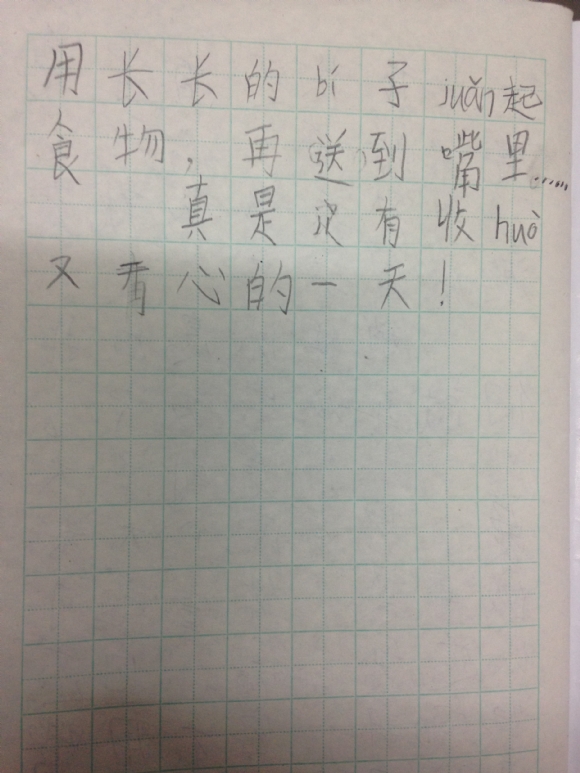 用长长的bí子juǎn起
食物，再送到嘴里……
真是没有收huò
又看心的一天！